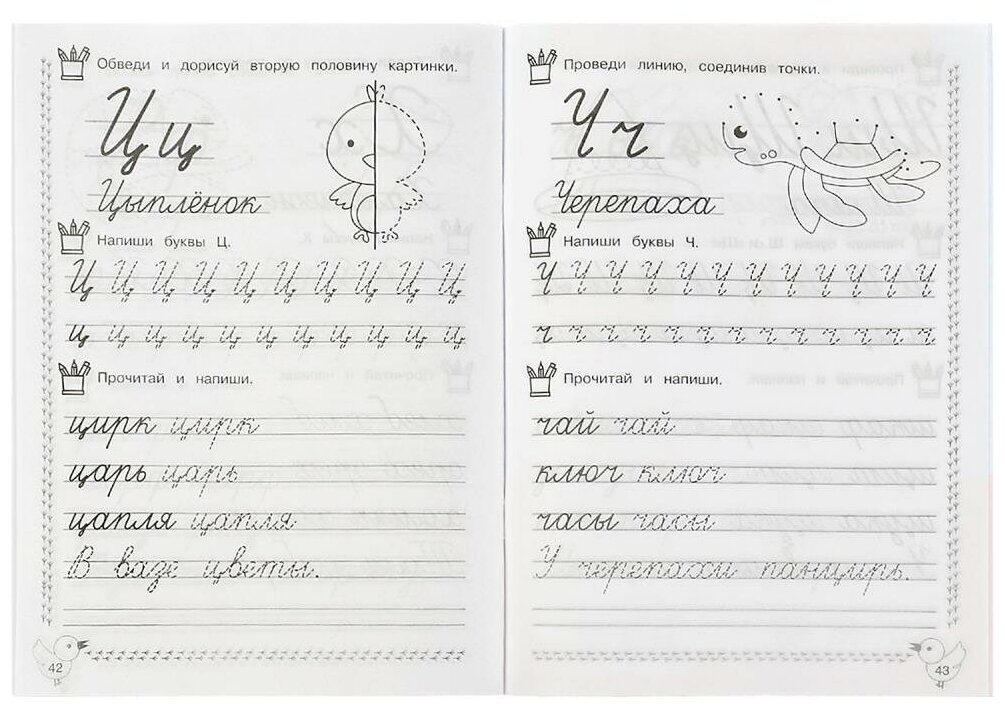 Обведи и дорисуй вторую половину картинки.
Ц ц
Цыплёнок
Напиши буквы Ц.
Ц Ц Ц Ц Ц Ц Ц Ц Ц Ц
ц ц ц ц ц ц ц ц ц ц ц
Прочитай и напиши.
цирк цирк
царь царь
цапля цапля
В вазе цветы.
42
Проведи линию, соединив точки.
Ч ч
Черепаха
Напиши буквы Ч.
Ч Ч Ч Ч Ч Ч Ч Ч Ч Ч Ч Ч
ч ч ч ч ч ч ч ч ч ч ч ч ч
Прочитай и напиши.
чай чай
ключ ключ
часы часы
У черепахи панцирь.
43